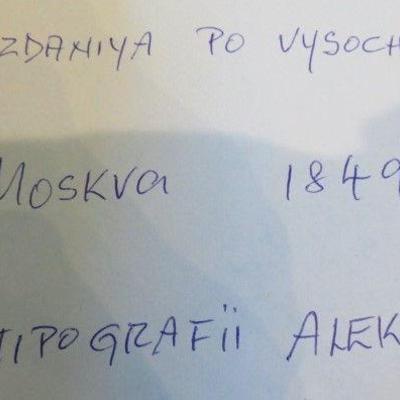 ZDANIYA PO VYSOCH
Moskva 1849
TIPOGRAFII ALEK